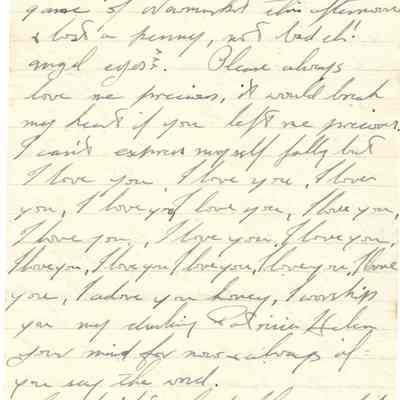 game of Newmarket this afternoon
& lost a penny, not bad eh!
angel eyes?. Please always
love me precious, it would break
my heart if you left me precious.
I can't express myself fully but
I love you, I love you, I love
you, I love you I love you, I love you,
I love you, I love you, I love you,
I love you, I love you I love you, I love you, I love
you, I adore you honey, I worship
you my darling Patricia Helen
your mind for now & always if =
you say the word.